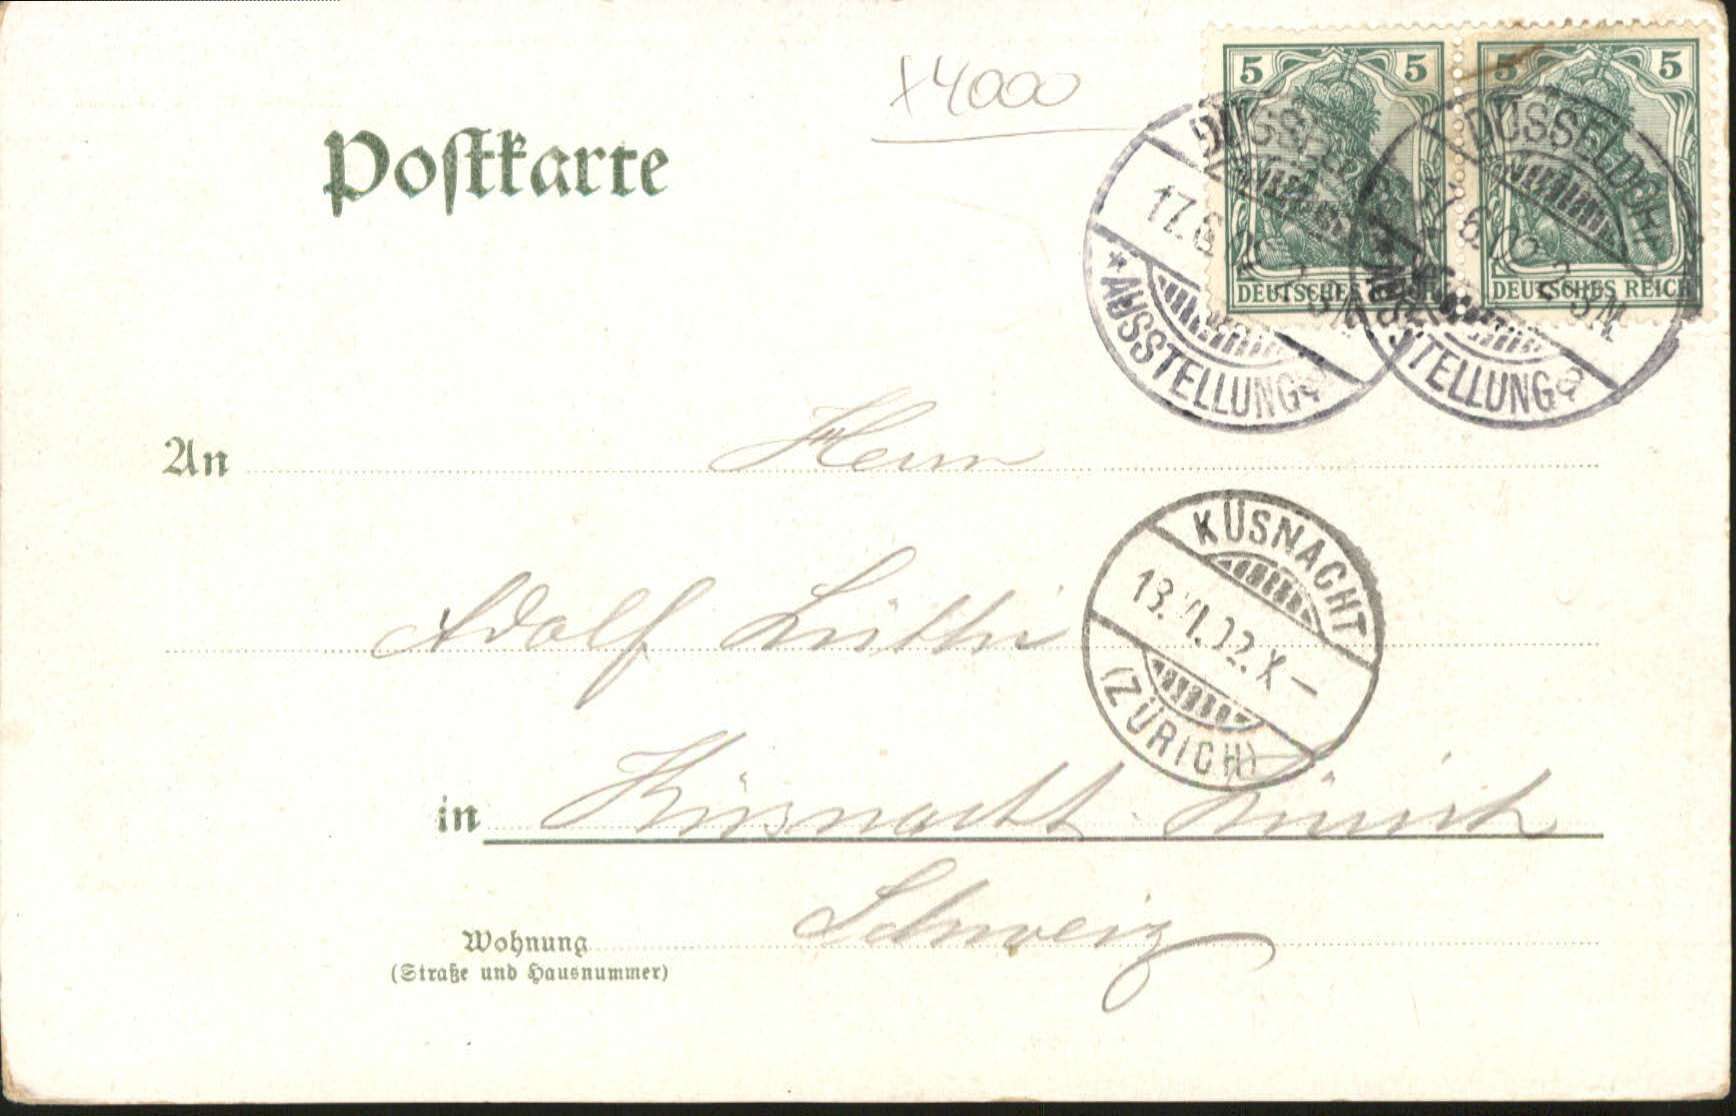 x4000
Postkarte
5 5 5 5
DEUTSCHES REICH DEUTSCHES REICH
DÜSSELDORF
17.6.02
*AUSSTELLUNG
DÜSSELDORF
17.6.02
AUSSTELLUNG
An Herrn
Adolf Lüthi
KÜSNACHT
(ZÜRICH)
in Küsnacht Zürich
Schweiz
Wohnung
(Straße und Hausnummer)